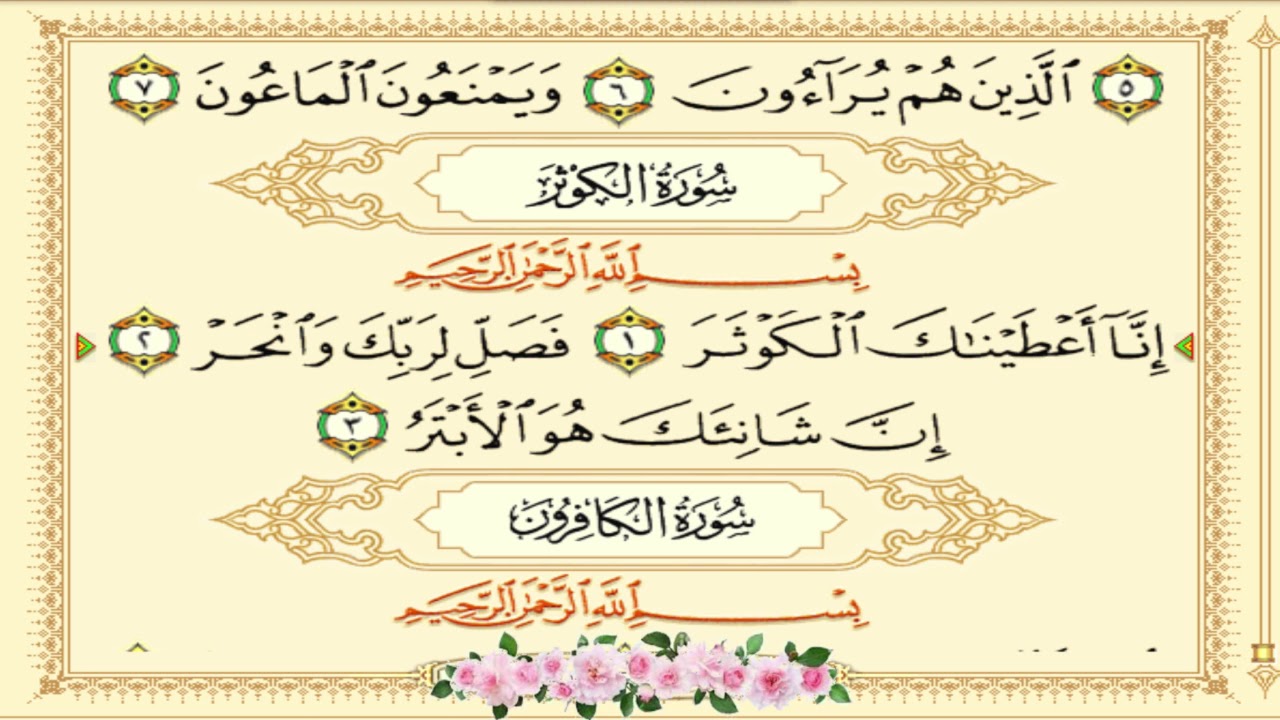 ٥ ٱلَّذِينَ هُمْ يُرَآءُونَ ٦ وَيَمْنَعُونَ ٱلْمَاعُونَ ٧
سُورَةُ الكَوْثَر
بِسْمِ ٱللَّهِ ٱلرَّحْمَٰنِ ٱلرَّحِيمِ
إِنَّآ أَعْطَيْنَٰكَ ٱلْكَوْثَرَ ١ فَصَلِّ لِرَبِّكَ وَٱنْحَرْ ٢
إِنَّ شَانِئَكَ هُوَ ٱلْأَبْتَرُ ٣
سُورَةُ الكَافِرُون
بِسْمِ ٱللَّهِ ٱلرَّحْمَٰنِ ٱلرَّحِيمِ